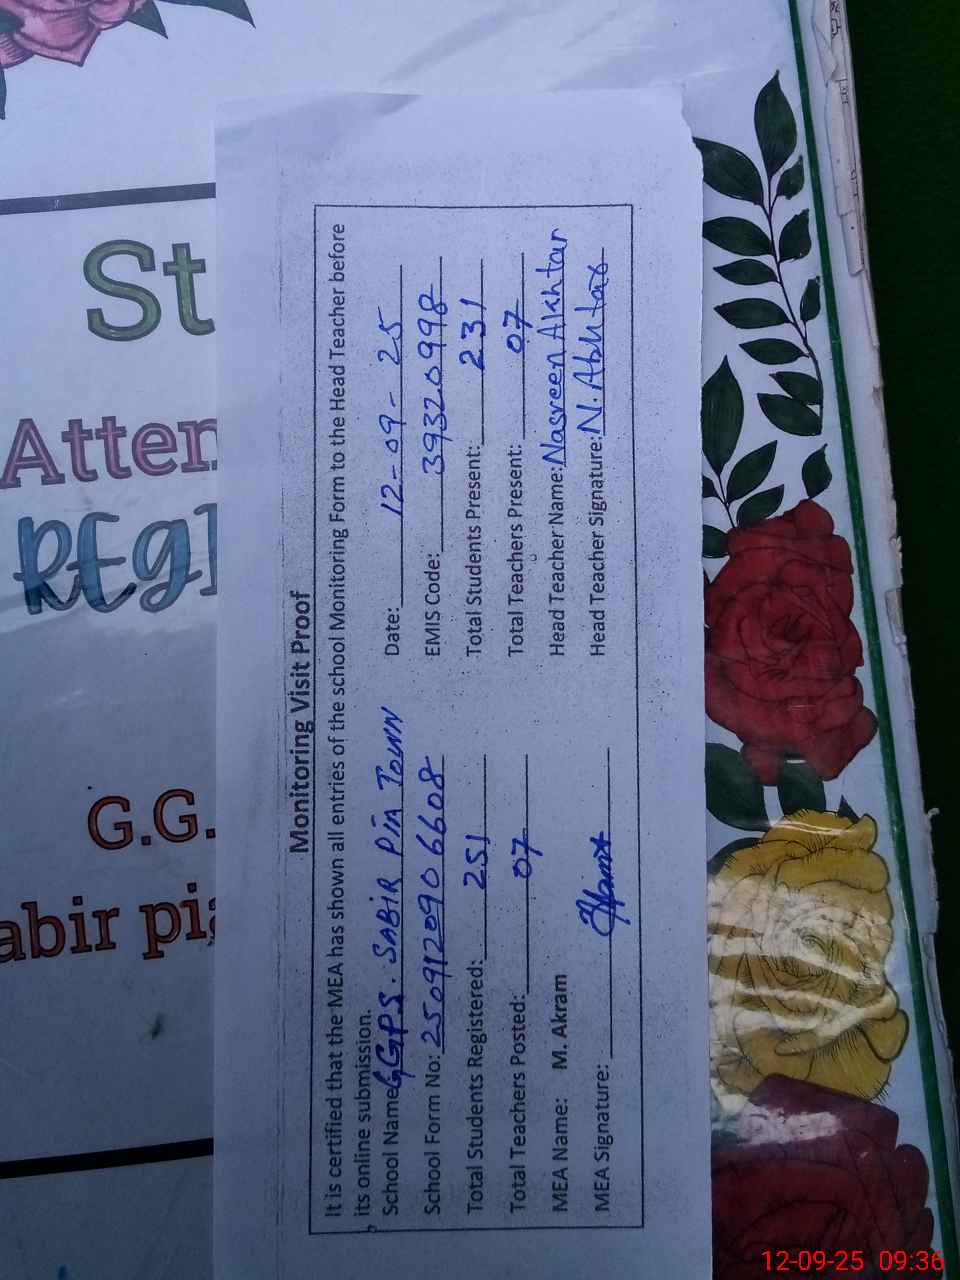 St
Atten
REgi
G.G.
abir pia
Monitoring Visit Proof
It is certified that the MEA has shown all entries of the school Monitoring Form to the Head Teacher before
its online submission.
School Name GGPS. SABIR PIA TOWN Date: 12-09-25
School Form No: 250912090 6608 EMIS Code: 39320998
Total Students Registered: 251 Total Students Present: 231
Total Teachers Posted: 07 Total Teachers Present: 07
MEA Name: M. Akram Head Teacher Name: Nasreen Akhtar
MEA Signature: Head Teacher Signature: N. Akhtar
12-09-25 09:36